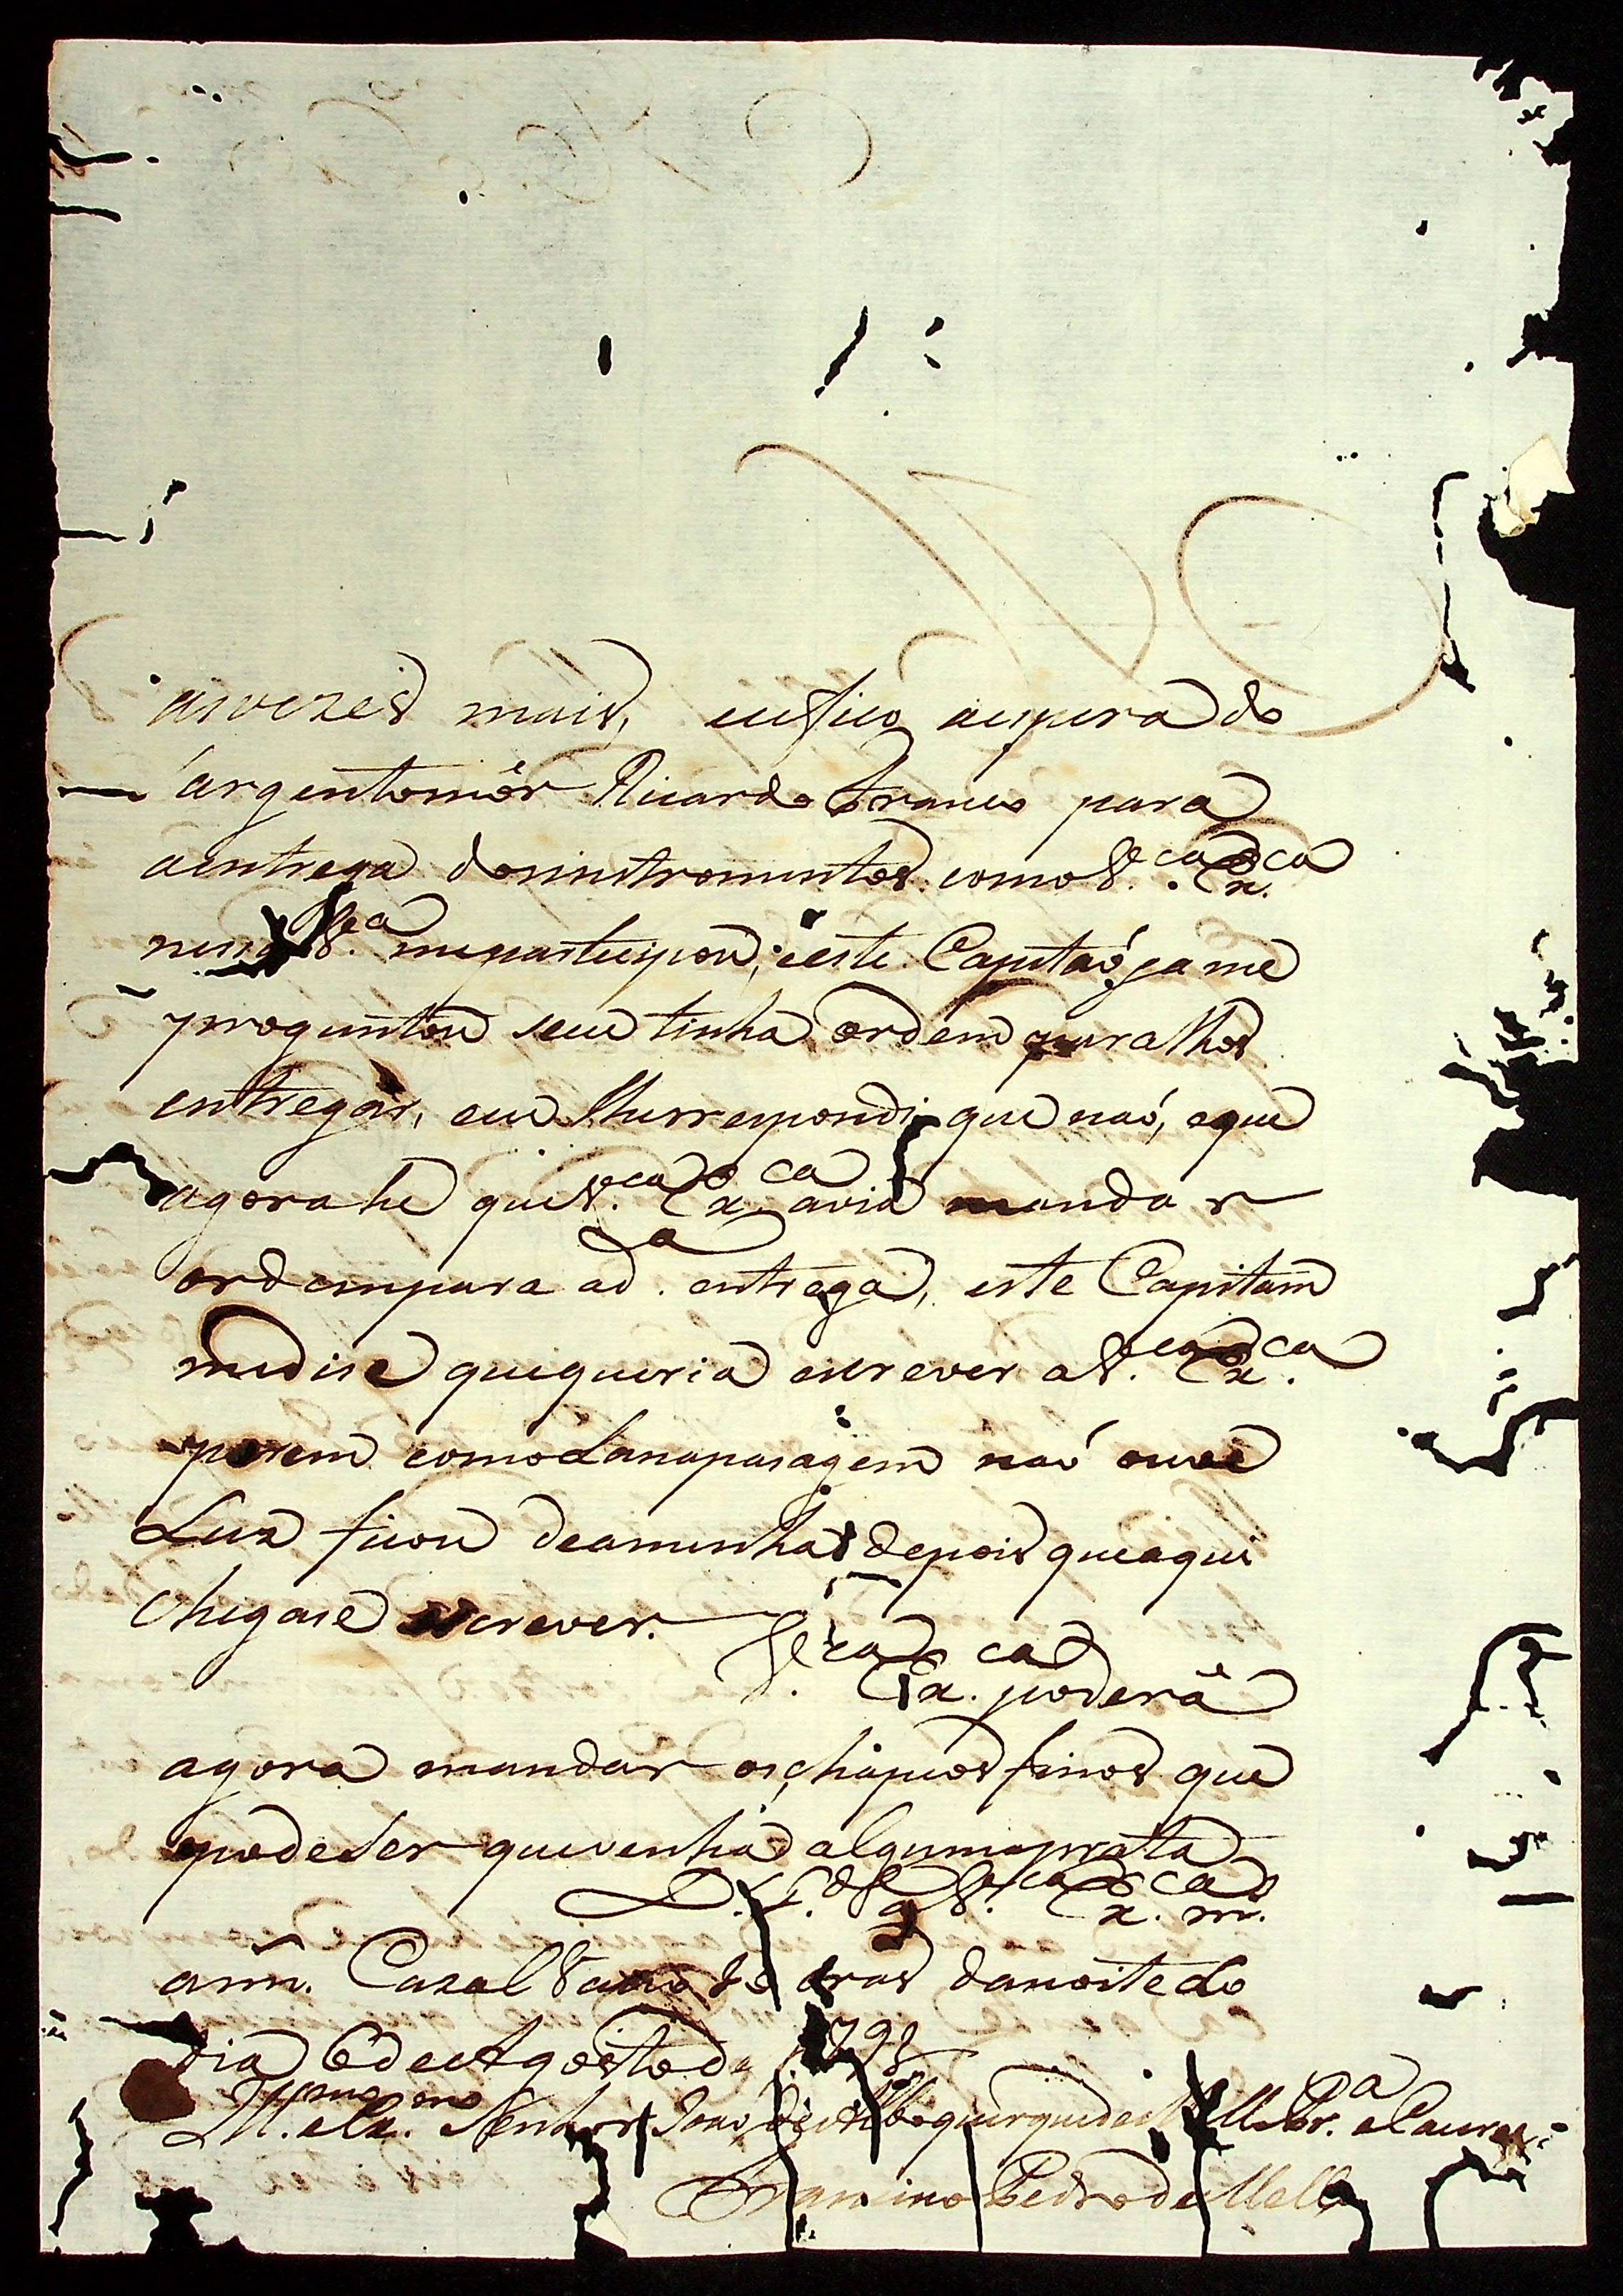 asvezes mais, eufico aespera do
sargentomór Ricardo Franco para
aentrega dosinstromentos como V.ca Ex.ca
nesa V.ca meparticipou; e este Capitaó ja me
proguntou seeu tinha ordem para lhos
entregar, eu lherrespondi que naó, eque
agora he que V.ca Ex.ca avia mandar
ordempara ad.a entrega, este Capitam
medise quequeria escrever a V.ca Ex.ca
porem comoLanapasagem naó ouve
Lus ficou deamenhá depois queaqui
chegase escrever.
V.ca Ex.ca poderá
agora mandar oschapeos finos que
podeser quevenha algumaprata
D.s g.de a V.ca Ex.ca m.s
ann. Cazal Vasco oras danoite do
dia 6 de Agosto de 1793
Ill.mo e Ex.mo Senhor Joaó de Alboquerquede Mello Pr.a e Caceres
Francisco Pedro de Mello